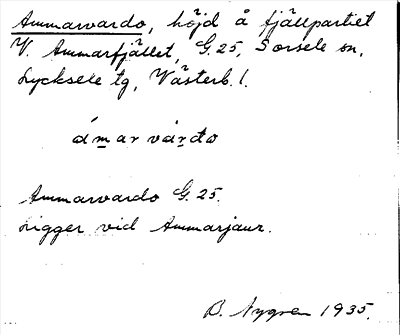 Ammarvardo, höjd å fjällpartiet
V. Ammarfjället, G. 25, Sorsele sn,
Lycksele tg, Västerb. l.
ámar várdo
Ammarvardo G. 25.
Ligger vid Ammarjaur.
B. Nygren 1935.